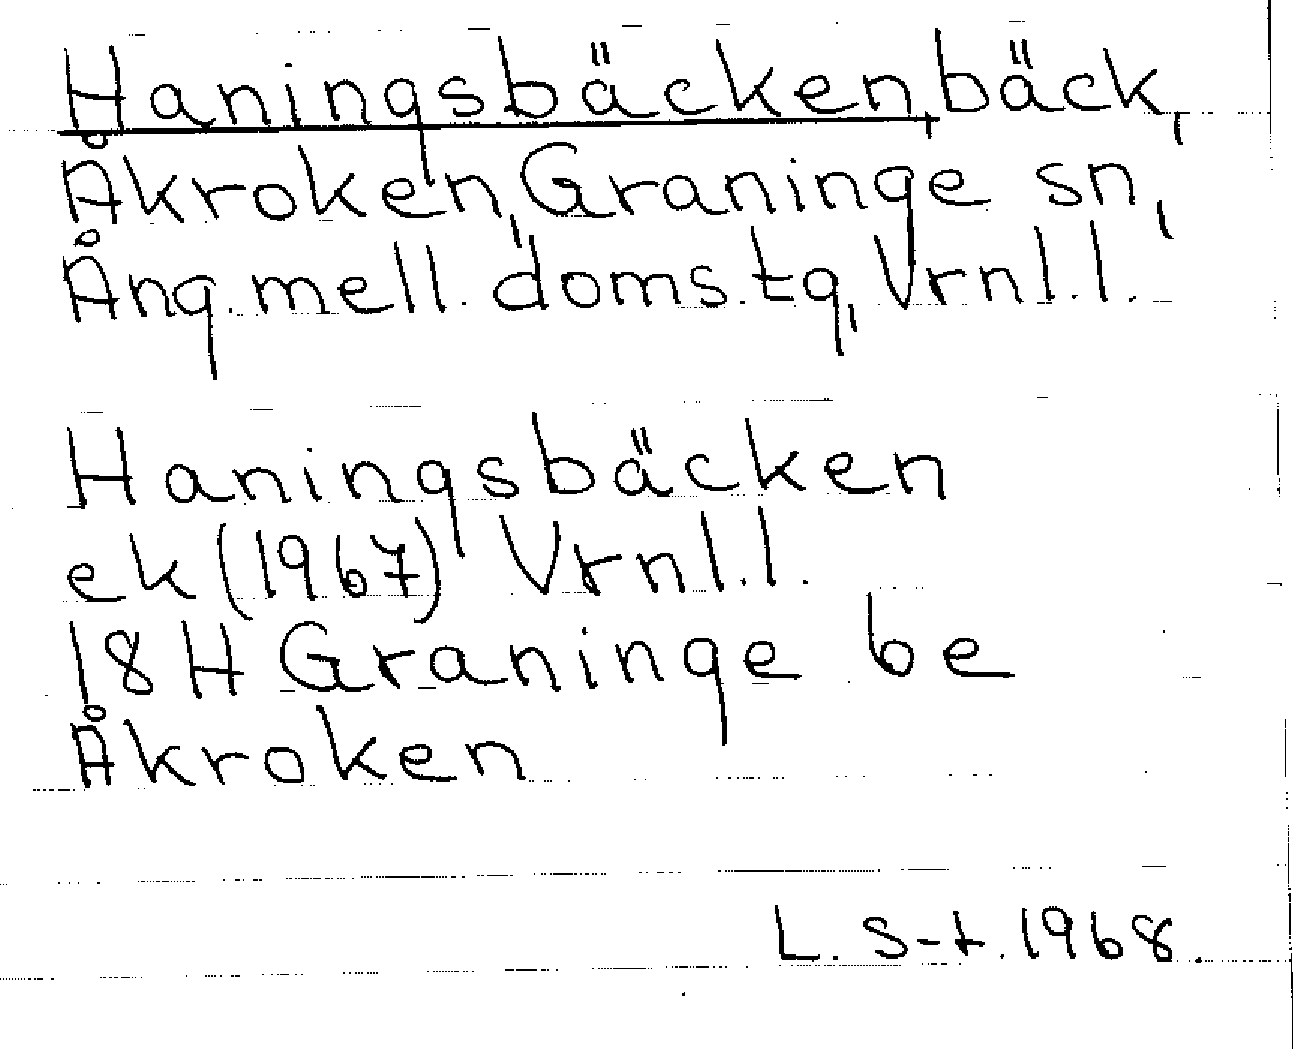 Haningsbäcken, bäck,
Åkroken, Graninge sn,
Ång. mell. doms. tg, Vrnl.l.
Haningsbäcken
ek (1967) Vrnl.l.
18H Graninge be
Åkroken
L. S-t. 1968.